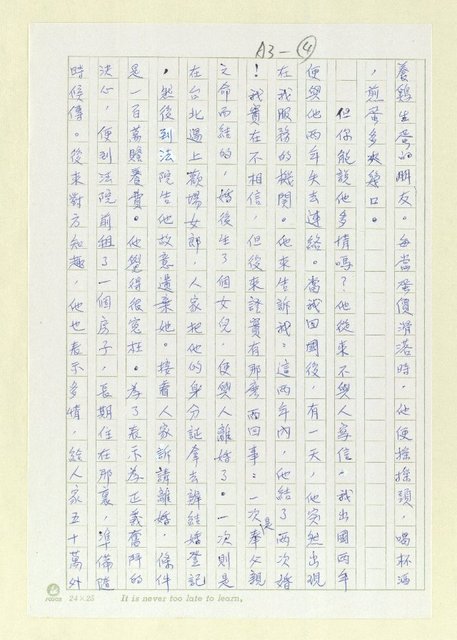 A3-④
養鷄生蛋的朋友。每當蛋價滑落時，他便搖搖頭，喝杯酒
，煎蛋多來幾口。
但你能說他多情嗎？他從來不與人寫信。我出國兩年
便與他兩年失去連絡。當我回國後，有一天，他突然出現
在我服務的機關。他來告訴我：這兩年內，他結了兩次婚
！我實在不相信，但後來證實有那麼兩回事：一次是奉父親
之命而結的，婚後生了個女兒，便與人離婚了。一次則是
在台北遇上歡場女郎，人家把他的身分証拿去辦結婚登記
，然後到法院告他故意遺棄她。接着人家訴請離婚，條件
是一百萬贍養費。他覺得很冤枉。為了表示為正義奮鬥的
決心，便到法院前租了一個房子，長期住在那裏，準備隨
時候傳。後來對方知趣，他也表示多情，給人家五十萬外
24×25
It is never too late to learn.